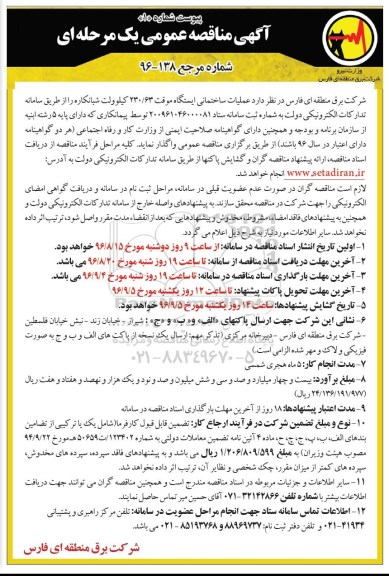 پیوست شماره «۱»
آگهی مناقصه عمومی یک مرحله ای
شماره مرجع ۱۳۸-۹۶
وزارت نیرو
شرکت برق منطقه ای فارس
شرکت برق منطقه ای فارس در نظر دارد عملیات ساختمانی ایستگاه موقت ۲۳۰/۶۳ کیلوولت شبانکاره را از طریق سامانه
تدارکات الکترونیکی دولت به شماره ثبت سامانه ستاد ۲۰۰۹۶۱۰۴۶۰۰۰۰۸۱ توسط پیمانکاری که دارای پایه ۵ رشته ابنیه
از سازمان برنامه و بودجه و همچنین دارای گواهینامه صلاحیت ایمنی از وزارت کار و رفاه اجتماعی (هر دو گواهینامه
دارای اعتبار در سال ۹۶ باشند) از طریق برگزاری مناقصه عمومی واگذار نماید. کلیه مراحل فرآیند مناقصه از دریافت
اسناد مناقصه، ارائه پیشنهاد مناقصه گران و گشایش پاکتها از طریق سامانه تدارکات الکترونیکی دولت به آدرس:
www.setadiran.ir انجام خواهد شد.
لازم است مناقصه گران در صورت عدم عضویت قبلی در سامانه، مراحل ثبت نام در سامانه و دریافت گواهی امضای
الکترونیکی را جهت شرکت در مناقصه محقق سازند. به پیشنهادهای واصله خارج از سامانه تدارکات الکترونیکی دولت و
همچنین به پیشنهادهای فاقد امضاء، مشروط، مخدوش و پیشنهادهایی که بعد از انقضاء مدت مقرر واصل شود، ترتیب اثر داده
نخواهد شد. سایر اطلاعات مورد نیاز به شرح ذیل اعلام می گردد.
۱- اولین تاریخ انتشار اسناد مناقصه در سامانه: از ساعت ۹ روز دوشنبه مورخ ۹۶/۸/۱۵ خواهد بود.
۲- آخرین مهلت دریافت اسناد مناقصه از سامانه: تا ساعت ۱۹ روز شنبه مورخ ۹۶/۸/۲۰ می باشد.
۳- آخرین مهلت بارگذاری اسناد مناقصه در سامانه: تا ساعت ۱۹ روز شنبه مورخ ۹۶/۹/۴ می باشد.
۴- آخرین مهلت تحویل پاکات پیشنهاد: تا ساعت ۱۲ روز یکشنبه مورخ ۹۶/۹/۵
۵- تاریخ گشایش پیشنهادها: ساعت ۱۴ روز یکشنبه مورخ ۹۶/۹/۵ خواهد بود.
۶- نشانی این شرکت جهت ارسال پاکتهای «الف» و «ب» و «ج»: شیراز - خیابان زند - نبش خیابان فلسطین
- شرکت برق منطقه ای فارس - دبیرخانه مرکزی (تذکر مهم: ارسال یک نسخه از پاکت های الف و ب و ج به صورت
فیزیکی و لاک و مهر شده الزامی است.)
۰۲۱-۸۸۳۴۹۶۷۰-۵
۷- مدت انجام کار: ۵ ماه هجری شمسی
۸- مبلغ برآورد: بیست و چهار میلیارد و صد و سی و شش میلیون و صد و نود و یک هزار و نهصد و هفتاد و هفت ریال
(۲۴/۱۳۶/۱۹۱/۹۷۷ ریال)
۹- مدت اعتبار پیشنهادها: ۱۸ روز از آخرین مهلت بارگذاری اسناد مناقصه در سامانه
۱۰- نوع و مبلغ تضمین شرکت در فرآیند ارجاع کار: تضمین قابل قبول کارفرما (شامل یک یا ترکیبی از تضامین
بندهای الف، ب، پ، ج، چ، ح، ماده ۴ آئین نامه تضمین معاملات دولتی به شماره ۱۲۳۴۰۲/ت۵۰۶۵۹هـ مورخ ۹۴/۹/۲۲
مصوب هیئت وزیران) به مبلغ ۱/۲۰۶/۸۰۹/۵۹۹ ریال می باشد و به پیشنهادهای فاقد سپرده، سپرده های مخدوش،
سپرده های کمتر از میزان مقرر، چک شخصی و نظایر آن، ترتیب اثر داده نخواهد شد.
۱۱- سایر اطلاعات و جزئیات مربوطه در اسناد مناقصه مندرج است و همچنین مناقصه گران می توانند جهت دریافت
اطلاعات بیشتر با شماره تلفن ۳۲۱۴۲۸۶۶-۰۷۱ آقای حسین میر تماس حاصل نمایند.
۱۲- اطلاعات تماس سامانه ستاد جهت انجام مراحل عضویت در سامانه: تلفن مرکز راهبری و پشتیبانی
۴۱۹۳۴-۰۲۱ و تلفن دفتر ثبت نام: ۸۸۹۶۹۷۳۷ و ۸۵۱۹۳۷۶۸ - ۰۲۱ می باشد.
شرکت برق منطقه ای فارس